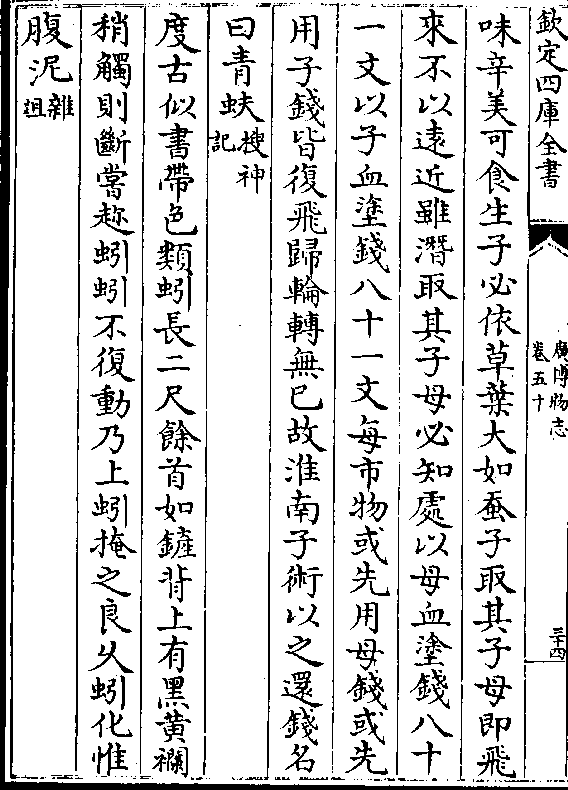 欽定四庫全書
廣博物志
卷五十
三十四
味辛美可食生子必依草葉大如蚕子取其子母即飛
來不以遠近雖潛取其子母必知處以母血塗錢八十
一文以子血塗錢八十一文每市物或先用母錢或先
用子錢皆復飛歸輪轉無已故淮南子術以之還錢名
曰青蚨搜神記
度古似書帶色類蚓長二尺餘首如鏟背上有黑黄襴
稍觸則斷嘗趂蚓蚓不復動乃上蚓掩之良乆蚓化惟
腹泥雜俎